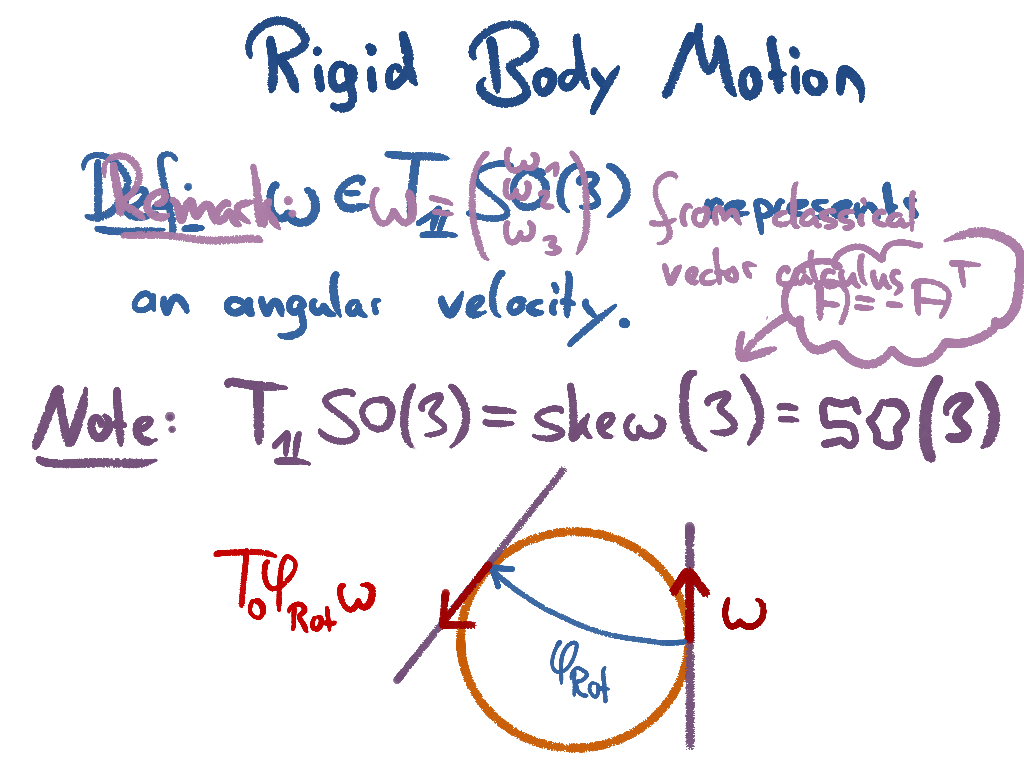 Rigid Body Motion
Def.: ω ∈ T_𝟙 SO(3) represents
an angular velocity.
Remark: ω = (ω₁ ω₂ ω₃) from classical
vector calculus
A = -Aᵀ
Note: T_𝟙 SO(3) = skew(3) = so(3)
T₀φ_Rot ω
ω
φ_Rot